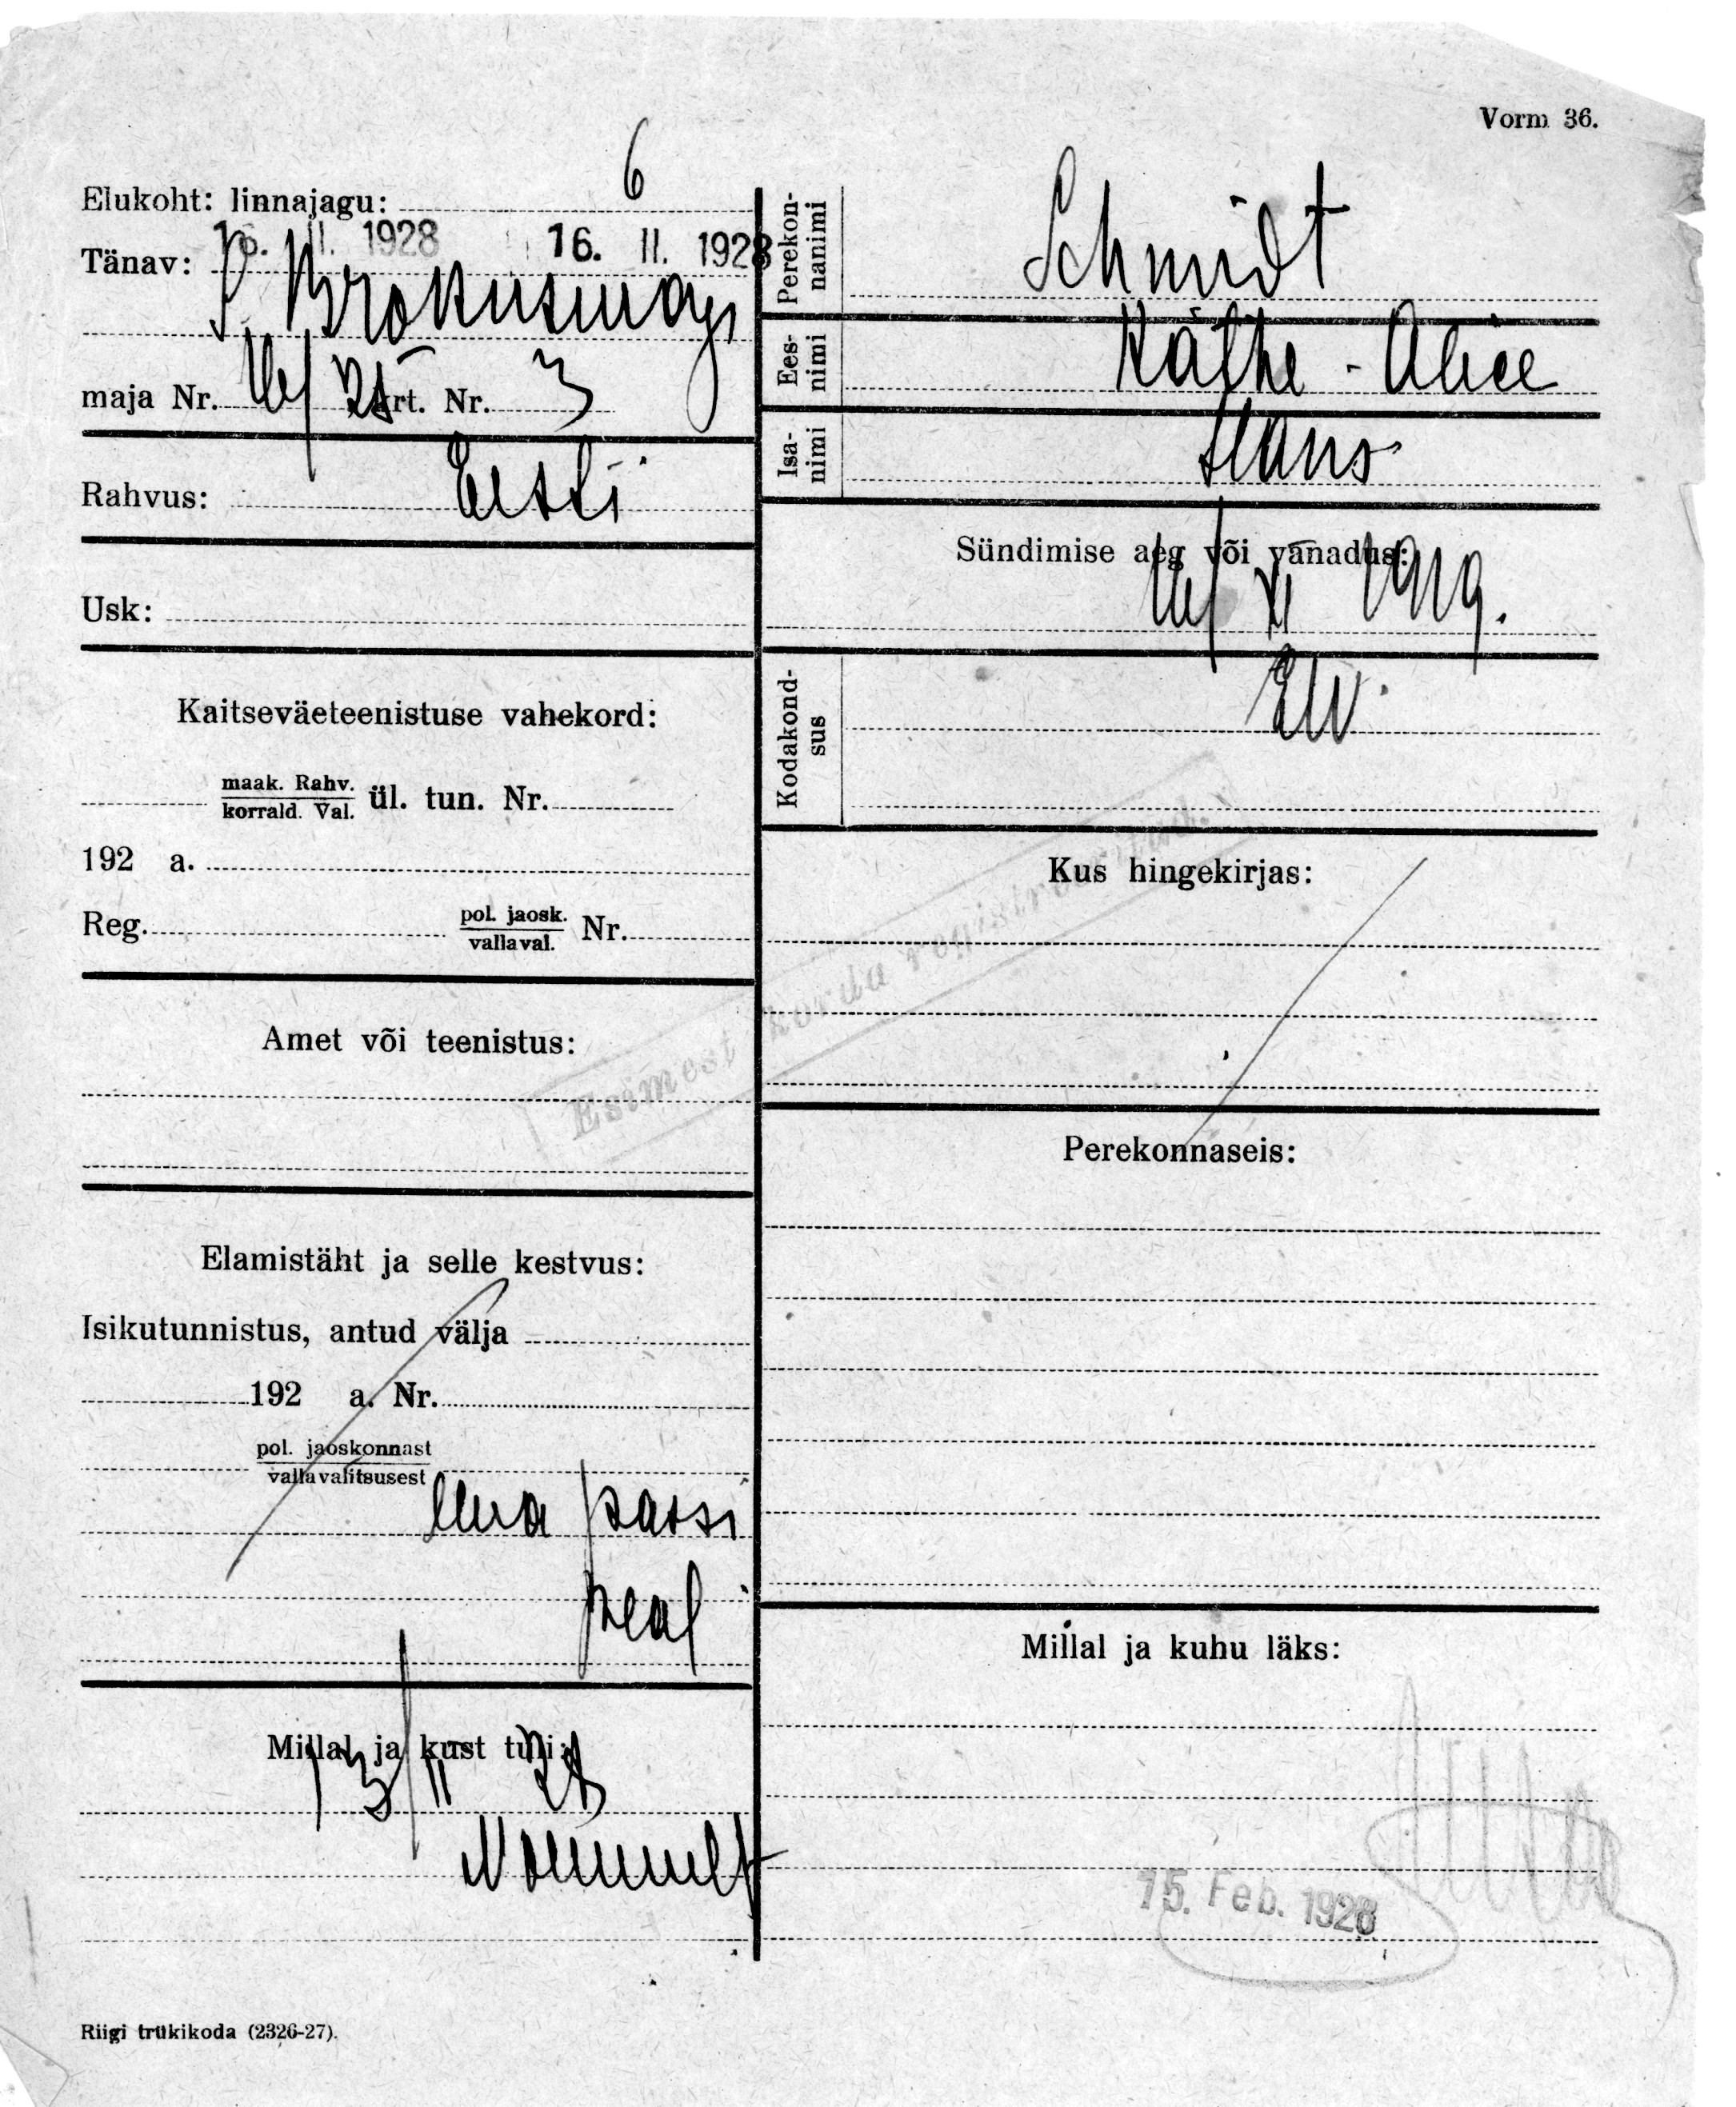 Vorm 36.
Elukoht: linnajagu: 6
16. II. 1928 16. II. 1928
Tänav:
maja Nr. krt. Nr. 3
Rahvus: Eesti
Usk:
Kaitseväeteenistuse vahekord:
maak. Rahv.
korrald. Val. ül. tun. Nr.
192 a.
Reg. pol. jaosk.
vallaval. Nr.
Amet või teenistus:
Elamistäht ja selle kestvus:
Isikutunnistus, antud välja
192 a. Nr.
pol. jaoskonnast
vallavalitsusest
ema passi
peal
Millal ja kust tuli:
13/II 28
Nõmmelt
Perekon-
nanimi
Schmidt
Ees-
nimi
Käthe - Alice
Isa-
nimi
Hans
Sündimise aeg või vanadus:
XI 1919.
Kodakond-
sus
EW.
Esimest korda registreeritud.
Kus hingekirjas:
Perekonnaseis:
Millal ja kuhu läks:
15. Feb. 1928
Riigi trükikoda (2326-27).